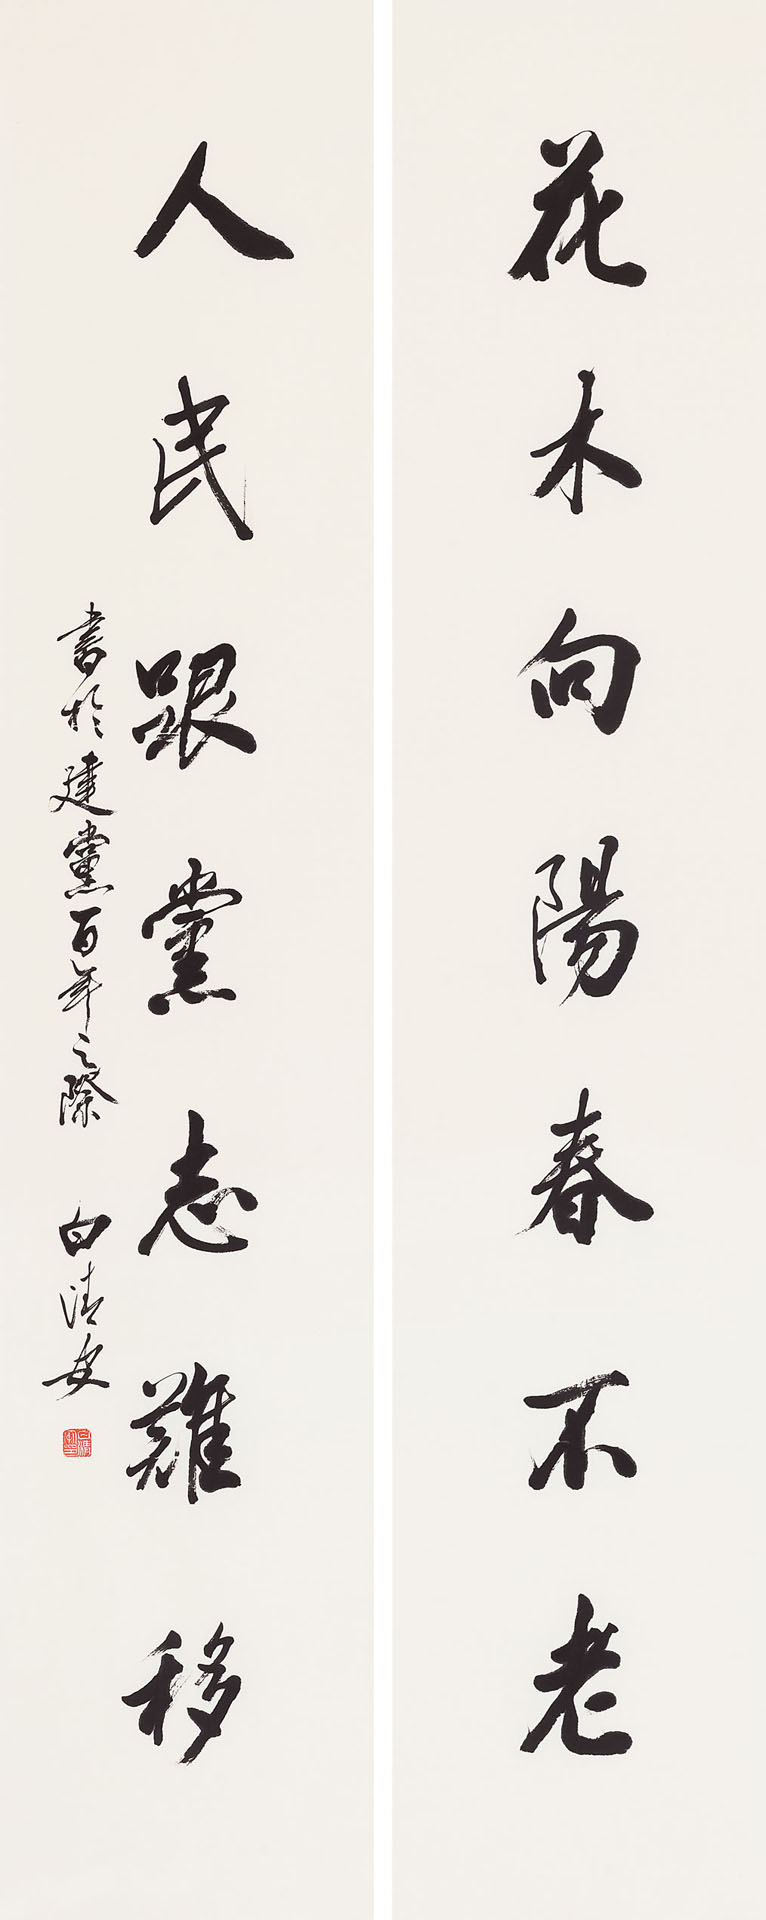 花木向陽春不老
人民跟黨志難移
書於建黨百年之際 白清安